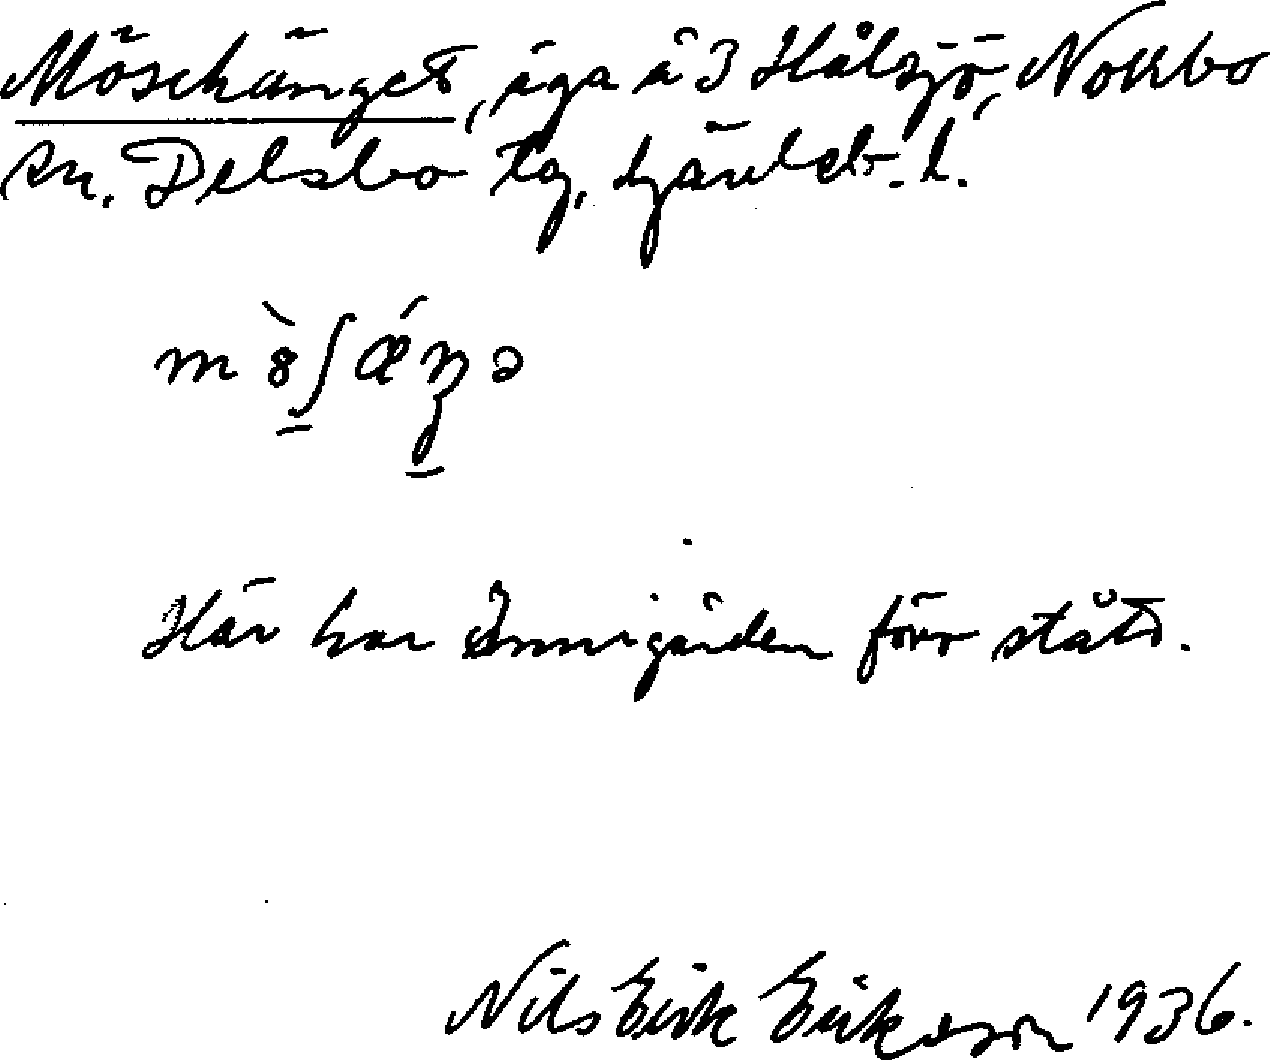 Möschänget, äga å 3 Hålsjö, Norrbo
sn. Delsbo tg, Gävleb. l.
Här har Ennigården förr stått.
Nils Erik Eriksson 1936.